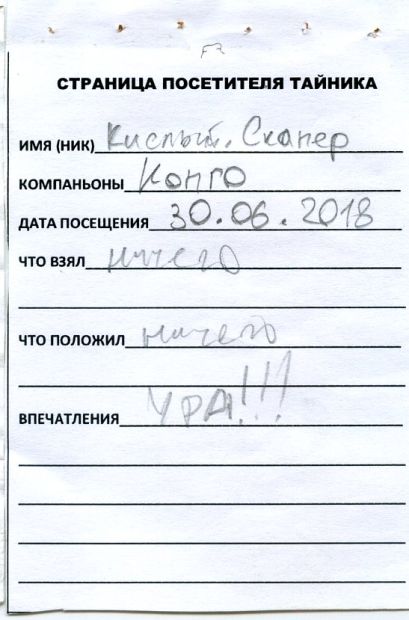 F7
СТРАНИЦА ПОСЕТИТЕЛЯ ТАЙНИКА
ИМЯ (НИК) Кислый. Сканер
КОМПАНЬОНЫ Конго
ДАТА ПОСЕЩЕНИЯ 30.06.2018
ЧТО ВЗЯЛ ничего
ЧТО ПОЛОЖИЛ ничего
ВПЕЧАТЛЕНИЯ УРА!!!